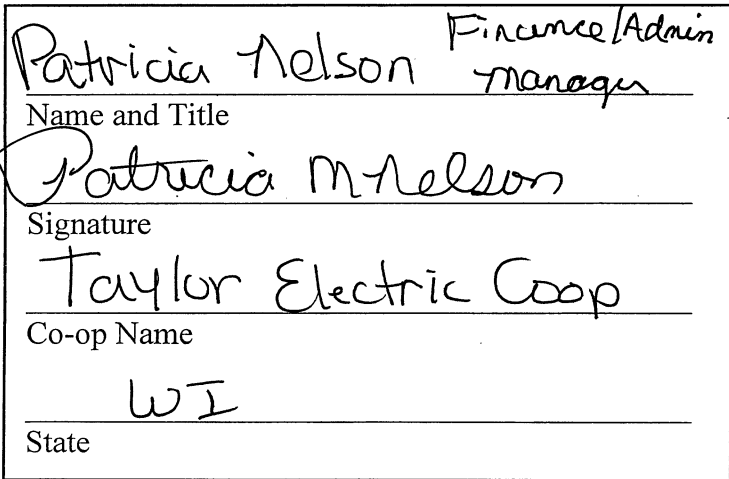 Patricia Nelson Finance/Admin Manager
Name and Title
Patricia M Nelson
Signature
Taylor Electric Coop
Co-op Name
WI
State